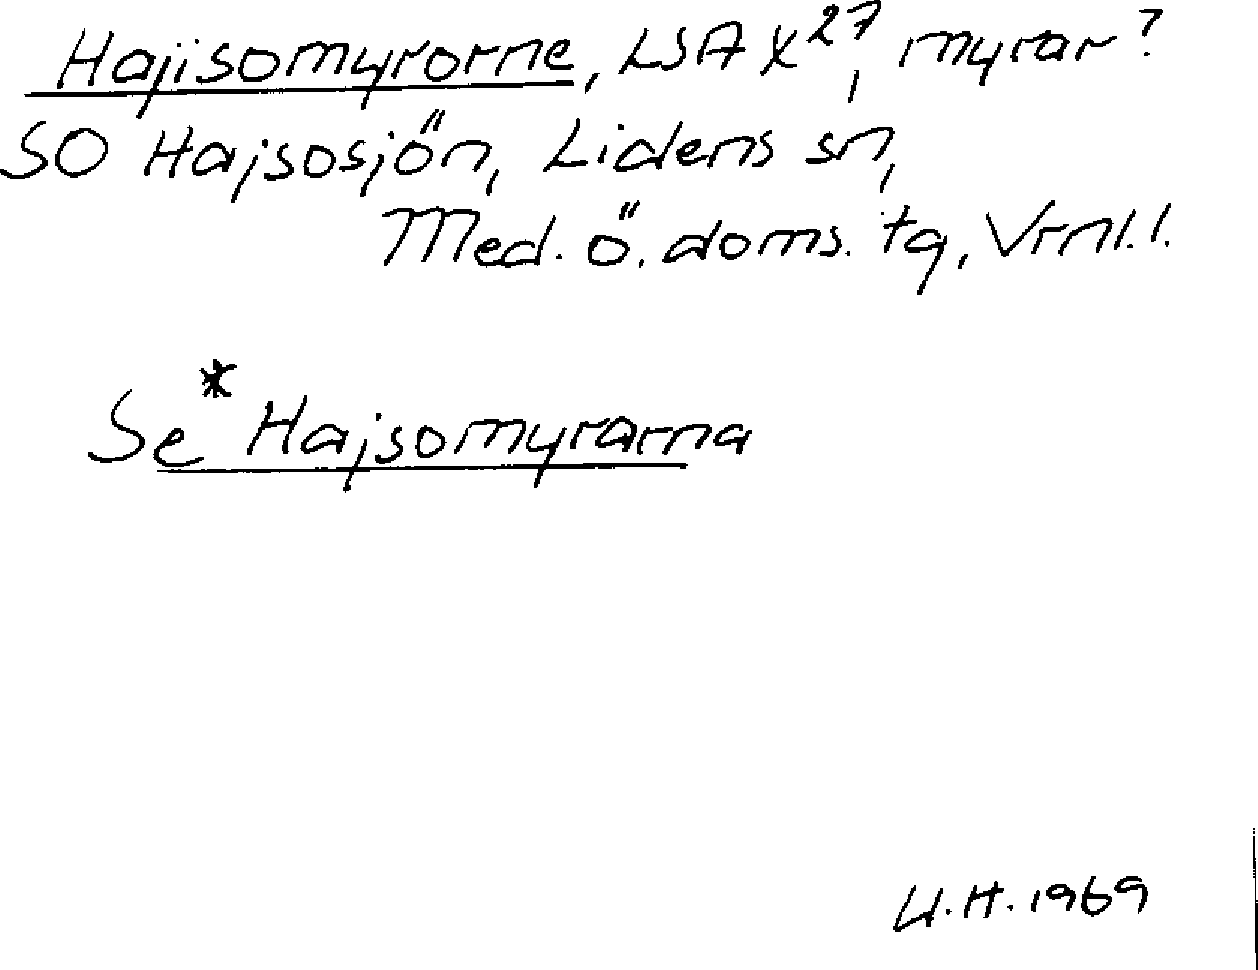 Hajisomyrorne, LSA X27, myrar?
SO Hajsosjön, Lidens sn,
Med. ö. doms. tg, Vrnl.l.
Se * Hajsomyrarna
U.H. 1969